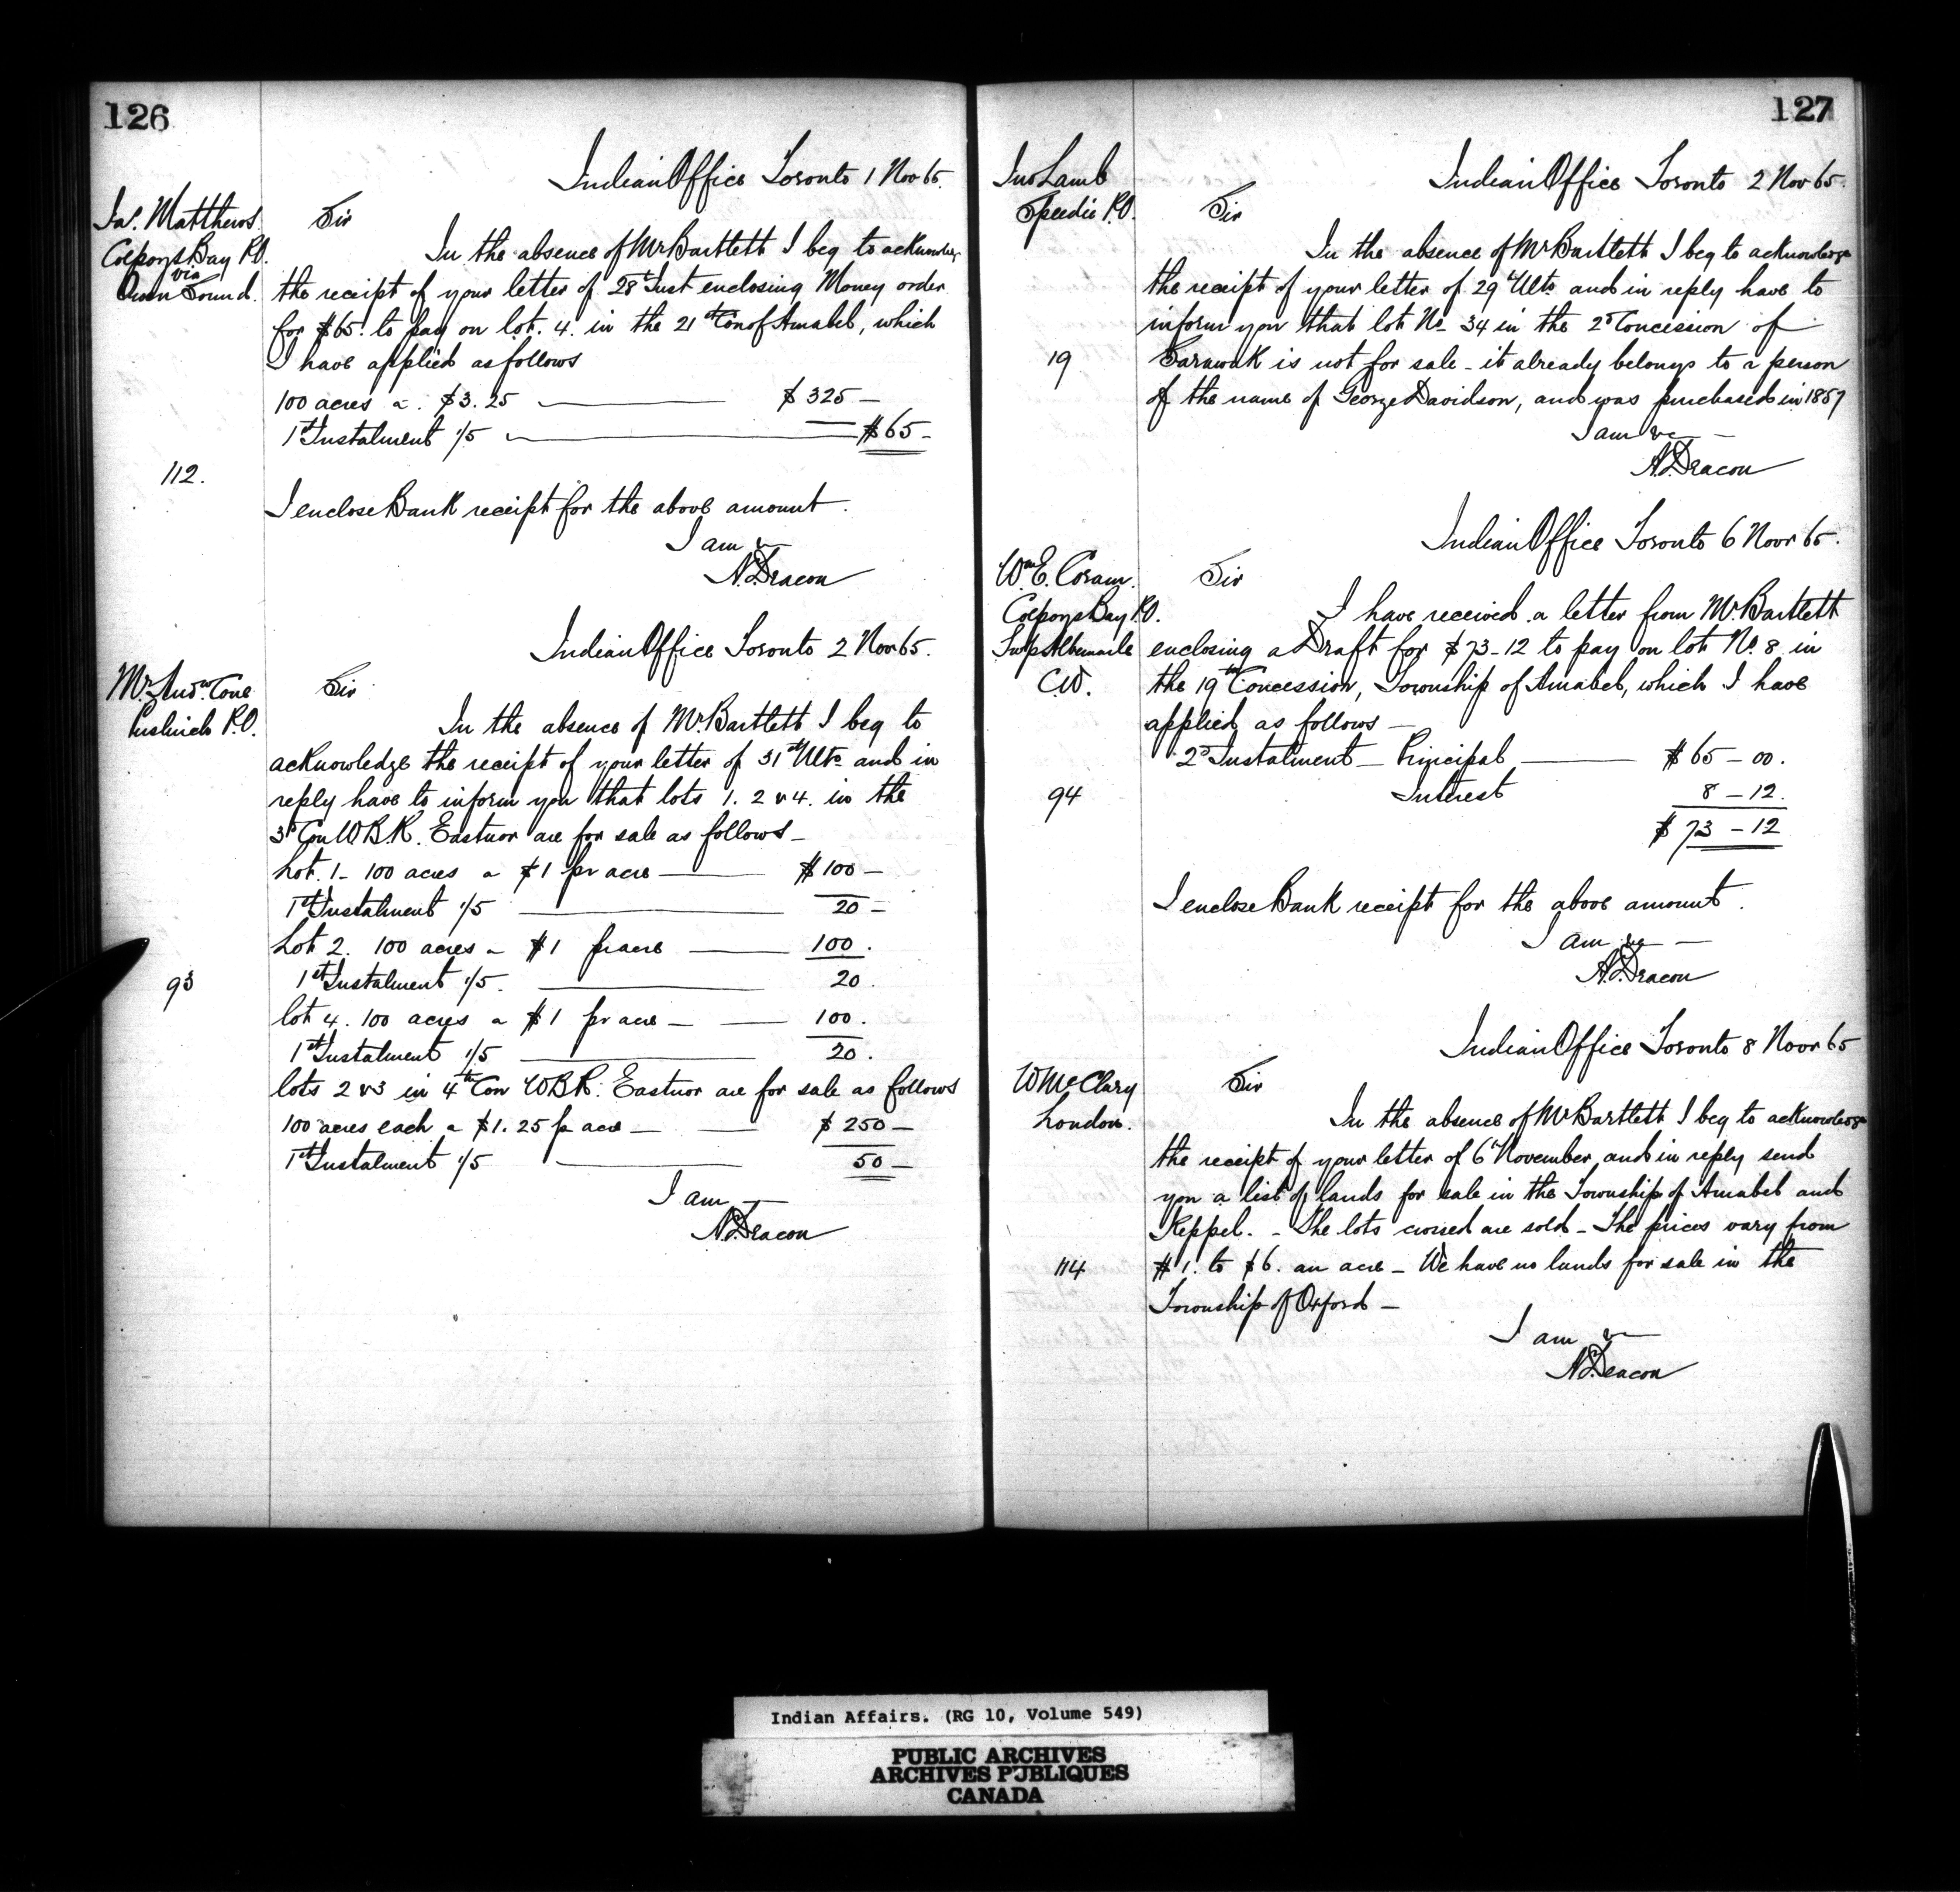 126
Indian Office Toronto 1 Nov 65.
Jas. Matthews
Colpoys Bay P.O.
via
Owen Sound.
Sir
In the absence of Mr Bartlett I beg to acknowledge
the receipt of your letter of 28th Inst enclosing Money order
for $65. to pay on lot. 4. in the 21st Con of Amabel, which
I have applied as follows
100 acres a. $3.25 $325 —
1st Instalment 1/5 $65 —
112.
I enclose Bank receipt for the above amount.
I am &c
N. Deacon
Indian Office Toronto 2 Nov 65.
Mr. Andw. Tone
Puslinch P.O.
Sir
In the absence of Mr. Bartlett I beg to
acknowledge the receipt of your letter of 31st Ulto and in
reply have to inform you that lots 1. 2 & 4. in the
3d Con W B. R. Eastnor are for sale as follows —
Lot. 1 — 100 acres a $1 pr acre $100 —
1st Instalment 1/5 20 —
Lot 2. 100 acres a $1 pr acre 100.
93
1st Instalment 1/5. 20.
lot 4. 100 acres a $1 pr acre — 100.
1st Instalment 1/5 20.
lots 2 & 3 in 4th Con W B R. Eastnor are for sale as follows
100 acres each a $1.25 p acre — $250 —
1st Instalment 1/5 50 —
I am —
N. Deacon
127
Indian Office Toronto 2 Nov 65.
Jno Lamb
Speedie P.O.
Sir
In the absence of Mr Bartlett I beg to acknowledge
the receipt of your letter of 29th Ulto and in reply have to
inform you that lot No 34 in the 2d Concession of
19
Sarawak is not for sale — it already belongs to a person
of the name of George Davidson, and was purchased in 1857
I am &c —
N. Deacon
Indian Office Toronto 6 Novr 65.
Wm E. Coram.
Colpoys Bay P.O.
Twp Albemarle
C.W.
Sir
I have received a letter from Mr. Bartlett
enclosing a Draft for $73-12 to pay on lot No. 8 in
the 19th Concession, Township of Amabel, which I have
applied as follows —
2d Instalment — Principal $65 — 00.
94
Interest 8 — 12.
$73 — 12
I enclose Bank receipt for the above amount.
I am &c —
N. Deacon
Indian Office Toronto 8 Novr 65
W McClary
London.
Sir
In the absence of Mr Bartlett I beg to acknowledge
the receipt of your letter of 6th November and in reply send
you a list of lands for sale in the Township of Amabel and
Keppel. — The lots crossed are sold — The prices vary from
114
$1. to $6. an acre — We have no lands for sale in the
Township of Orford —
I am &c
N. Deacon
Indian Affairs. (RG 10, Volume 549)
PUBLIC ARCHIVES
ARCHIVES PUBLIQUES
CANADA